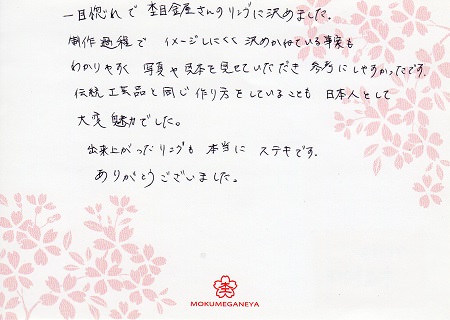 一目惚れで 杢目金屋さんのリングに決めました。
制作過程で イメージしにくく 決めかねている事実も
わかりやすく 写真や見本を見せていただき 参考にしやすかったです。
伝統工芸品と同じ作り方をしていることも 日本人として
大変魅力でした。
出来上がったリングも 本当に ステキです。
ありがとうございました。
MOKUMEGANEYA